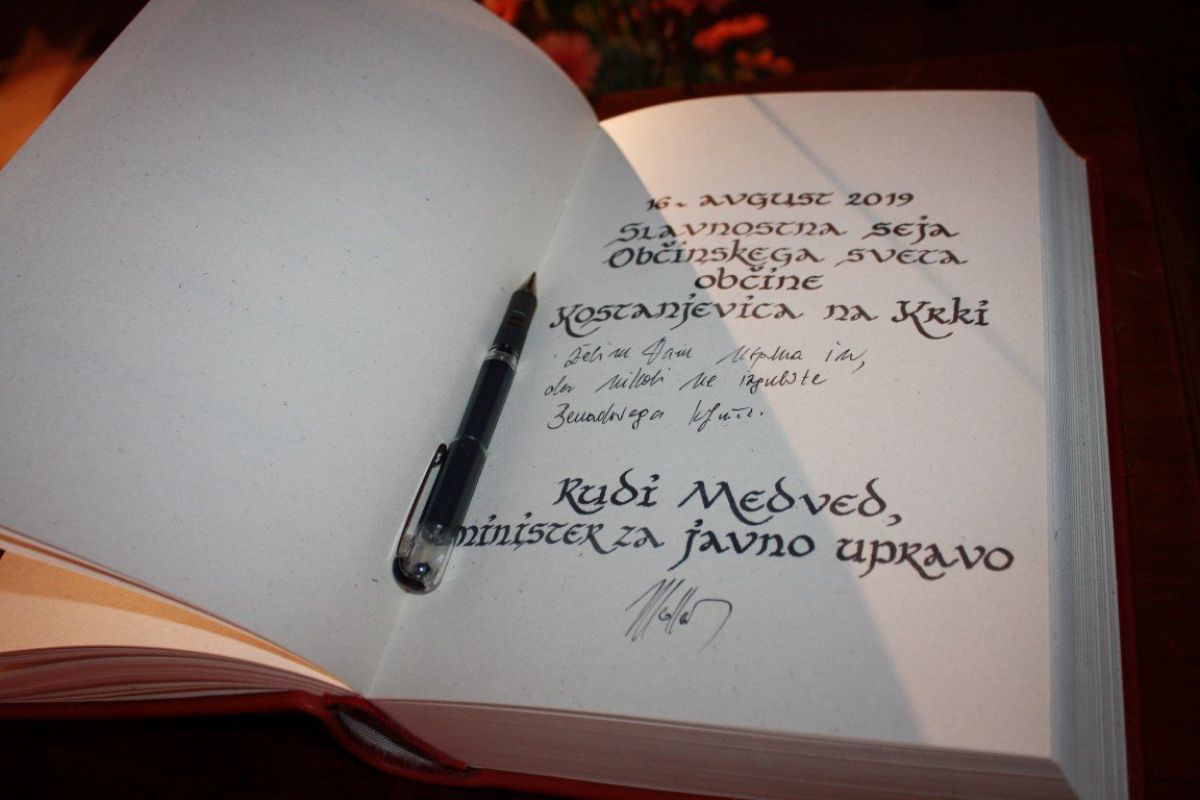 16. avgust 2019
Slavnostna seja
Občinskega sveta
občine
Kostanjevica na Krki
Želim Vam uspeha in,
da nikoli ne izgubite
Rudi Medved,
minister za javno upravo